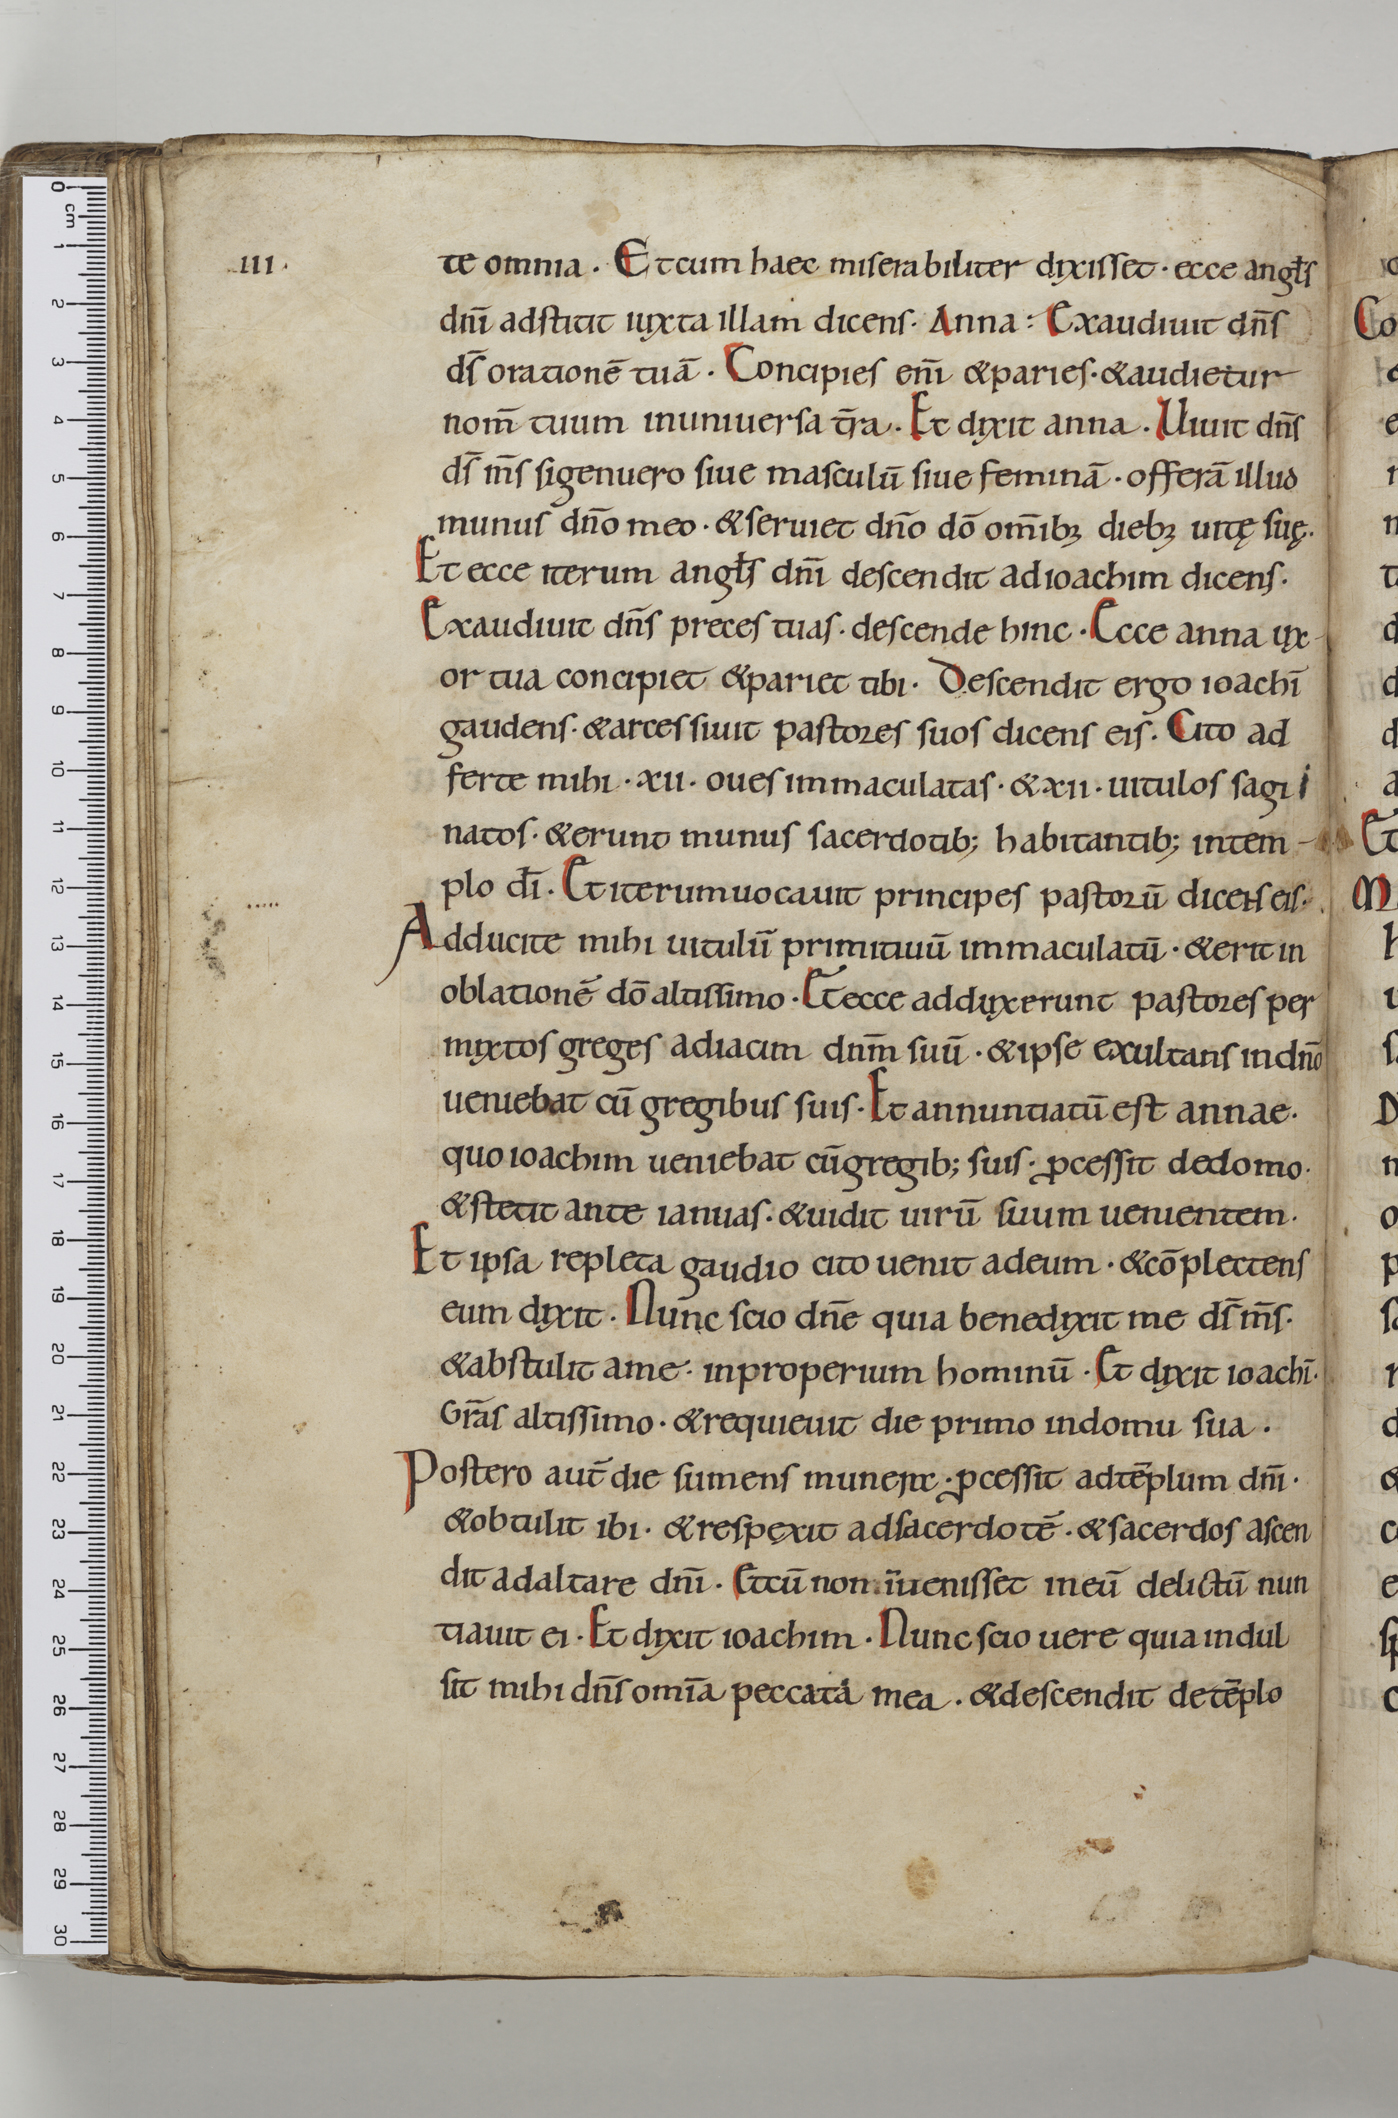 .III.
te omnia. Et cum haec miserabiliter dixisset. ecce angl̄s
dn̄i adstitit iuxta illam dicens. Anna: Exaudiuit dn̄s
ds̄ orationē tuā. Concipies eni̅ & paries. & audietur
nom̄ tuum in uniuersa t̄ra. Et dixit anna. Uiuit dn̄s
ds̄ m̄s si genuero siue masculū siue feminā. offerā illud
munus dn̄o meo. & seruiet dn̄o dō om̄ibꝫ diebꝫ uitę suę.
Et ecce iterum angl̄s dn̄i descendit ad ioachim dicens.
Exaudiuit dn̄s preces tuas. descende hinc. Ecce anna ux-
or tua concipiet & pariet tibi. Descendit ergo ioachī
gaudens. & arcessiuit pastores suos dicens eis. Cito ad
ferte mihi .xii. oues immaculatas. & xii. uitulos sagi
natos. & erunt munus sacerdotib; habitantib; in tem-
plo dī. Et iterum uocauit principes pastorū dicens eis.
Adducite mihi uitulū primitiuū immaculatū. & erit in
oblationē dō altissimo. Et ecce adduxerunt pastores per
mixtos greges ad iacim dnm̄ suū. & ipse exultans in dn̄o
ueniebat cū gregibus suis. Et annuntiatū est annae.
quo ioachim ueniebat cū gregib; suis. ꝓcessit de domo.
& stetit ante ianuas. & uidit uirū suum uenientem.
Et ipsa repleta gaudio cito uenit ad eum. & cōplectens
eum dixit. Nunc scio dn̄e quia benedixit me ds̄ m̄s.
& abstulit a me. inproperium hominū. Et dixit ioachī.
Grās altissimo. & requieuit die primo in domu sua.
Postero aut̄ die sumens munera. ꝓcessit ad tēplum dn̄i.
& obtulit ibi. & respexit ad sacerdotē. & sacerdos ascen
dit ad altare dn̄i. Et cū non īuenisset in eū delictū nun
tiauit ei. Et dixit ioachim. Nunc scio uere quia indul
sit mihi dn̄s om̄ia peccata mea. & descendit de tēplo